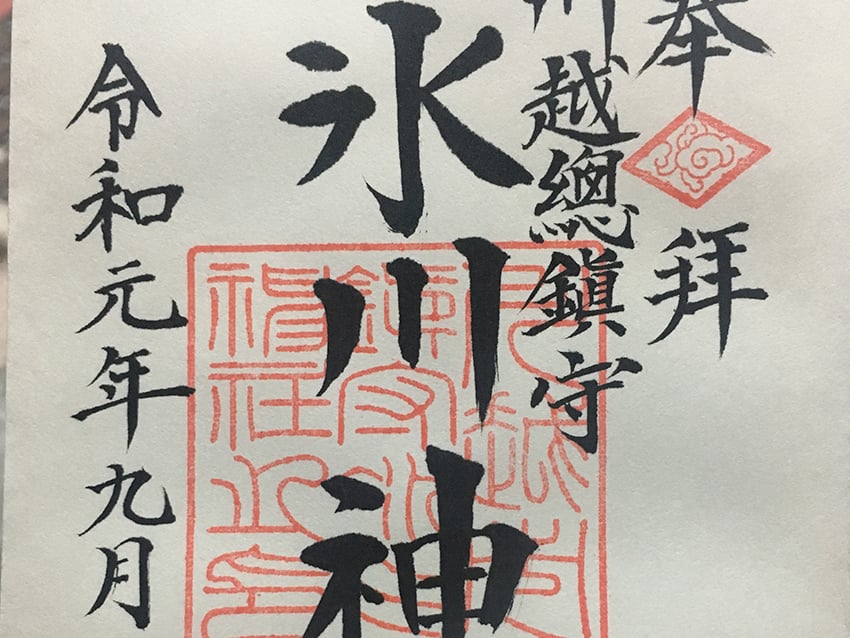 奉拝
川越總鎮守
氷川神
令和元年九月